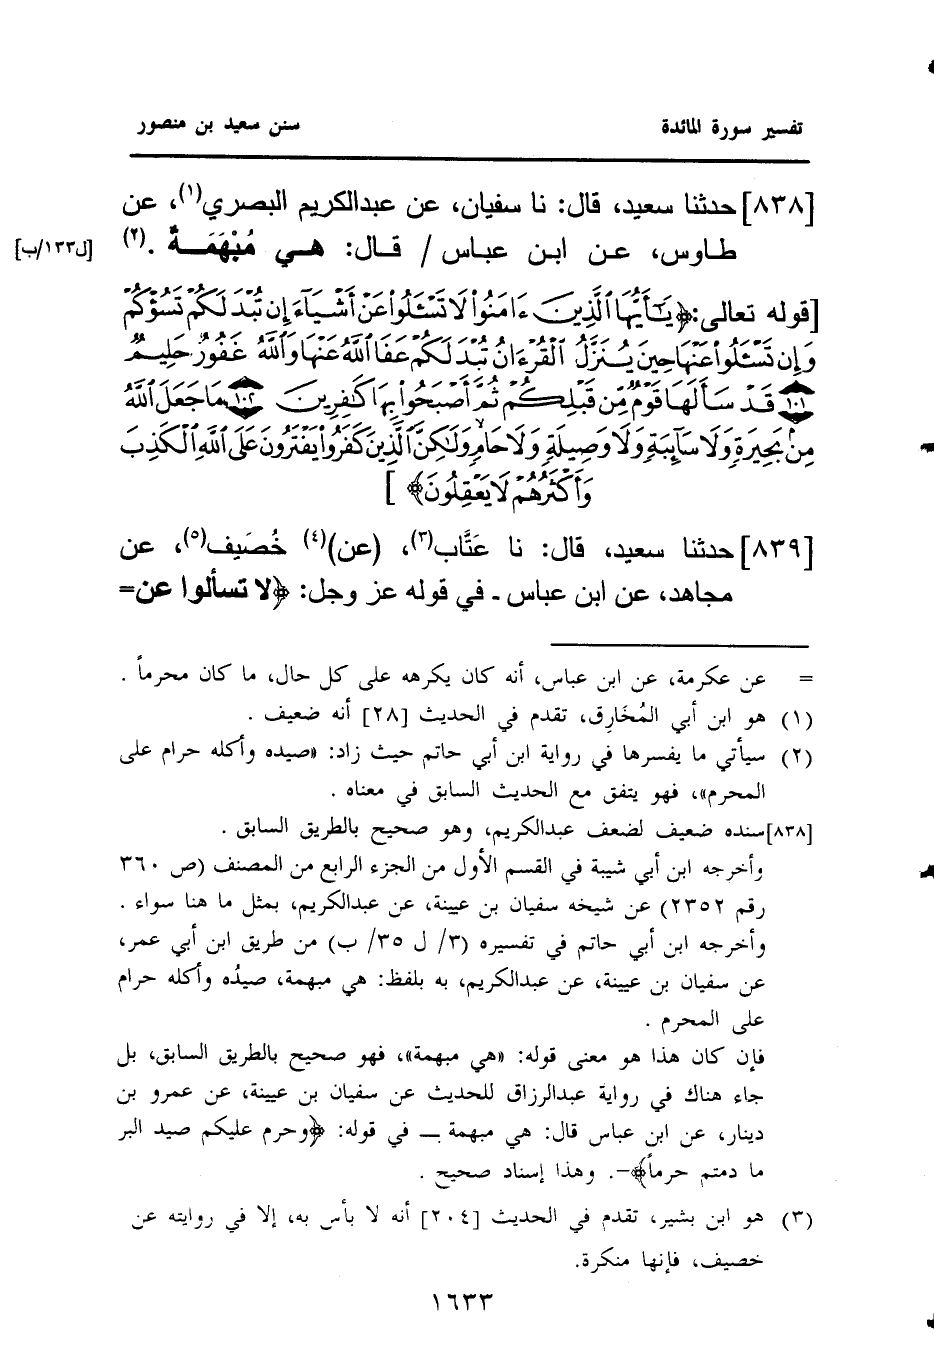 تفسير سورة المائدة سنن سعيد بن منصور
[٨٣٨] حدثنا سعيد، قال: نا سفيان، عن عبدالكريم البصري(١)، عن
طاوس، عن ابن عباس / قال: هي مُبْهَمَةٌ .(٢) [ل١٣٣/ب]
[قوله تعالى: ﴿يَٰٓأَيُّهَا ٱلَّذِينَ ءَامَنُوا۟ لَا تَسْـَٔلُوا۟ عَنْ أَشْيَآءَ إِن تُبْدَ لَكُمْ تَسُؤْكُمْ
وَإِن تَسْـَٔلُوا۟ عَنْهَا حِينَ يُنَزَّلُ ٱلْقُرْءَانُ تُبْدَ لَكُمْ عَفَا ٱللَّهُ عَنْهَا وَٱللَّهُ غَفُورٌ حَلِيمٌ
١٠١ قَدْ سَأَلَهَا قَوْمٌ مِّن قَبْلِكُمْ ثُمَّ أَصْبَحُوا۟ بِهَا كَٰفِرِينَ ١٠٢ مَا جَعَلَ ٱللَّهُ
مِنۢ بَحِيرَةٍ وَلَا سَآئِبَةٍ وَلَا وَصِيلَةٍ وَلَا حَامٍ وَلَٰكِنَّ ٱلَّذِينَ كَفَرُوا۟ يَفْتَرُونَ عَلَى ٱللَّهِ ٱلْكَذِبَ
وَأَكْثَرُهُمْ لَا يَعْقِلُونَ﴾ ]
[٨٣٩] حدثنا سعيد، قال: نا عَتَّاب(٣)، (عن)(٤) خُصَيف(٥)، عن
مجاهد، عن ابن عباس - في قوله عز وجل: ﴿لا تسألوا عن=
= عن عكرمة، عن ابن عباس، أنه كان يكرهه على كل حال، ما كان محرماً .
(١) هو ابن أبي المُخَارِق، تقدم في الحديث [٢٨] أنه ضعيف .
(٢) سيأتي ما يفسرها في رواية ابن أبي حاتم حيث زاد: «صيده وأكله حرام على
المحرم»، فهو يتفق مع الحديث السابق في معناه .
[٨٣٨] سنده ضعيف لضعف عبدالكريم، وهو صحيح بالطريق السابق .
وأخرجه ابن أبي شيبة في القسم الأول من الجزء الرابع من المصنف (ص ٣٦٠
رقم ٢٣٥٢) عن شيخه سفيان بن عيينة، عن عبدالكريم، بمثل ما هنا سواء .
وأخرجه ابن أبي حاتم في تفسيره (٣/ ل ٣٥/ ب) من طريق ابن أبي عمر،
عن سفيان بن عيينة، عن عبدالكريم، به بلفظ: هي مبهمة، صيدُه وأكله حرام
على المحرم .
فإن كان هذا هو معنى قوله: «هي مبهمة»، فهو صحيح بالطريق السابق، بل
جاء هناك في رواية عبدالرزاق للحديث عن سفيان بن عيينة، عن عمرو بن
دينار، عن ابن عباس قال: هي مبهمة ــ في قوله: ﴿وحرم عليكم صيد البر
ما دمتم حرماً﴾-. وهذا إسناد صحيح .
(٣) هو ابن بشير، تقدم في الحديث [٢٠٤] أنه لا بأس به، إلا في روايته عن
خصيف، فإنها منكرة.
١٦٣٣